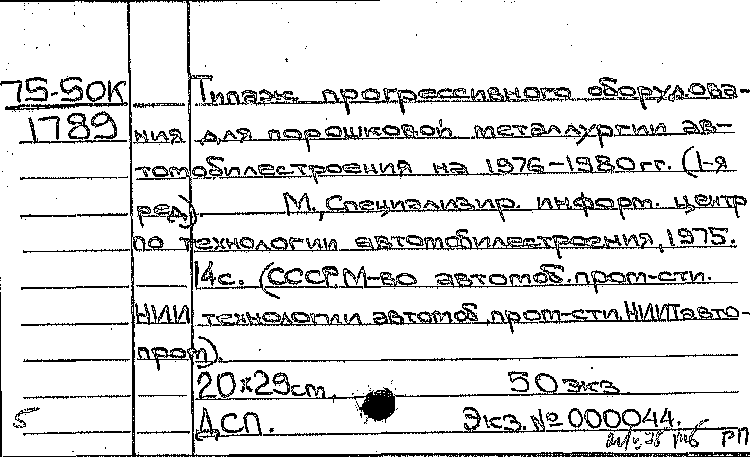 75-50К Типаж прогрессивного оборудова-
1789 ния для порошковой металлургии ав-
томобилестроения на 1976-1980 гг. (1-я
ред). М., Специализир. информ. центр
по технологии автомобилестроения, 1975.
14с. (СССР. М-во автомоб. пром-сти.
НИИ технологии автомоб. пром-сти. НИИТавто-
пром).
20×29cm. 50 экз.
5 ДСП. Экз. № 000044.
РП